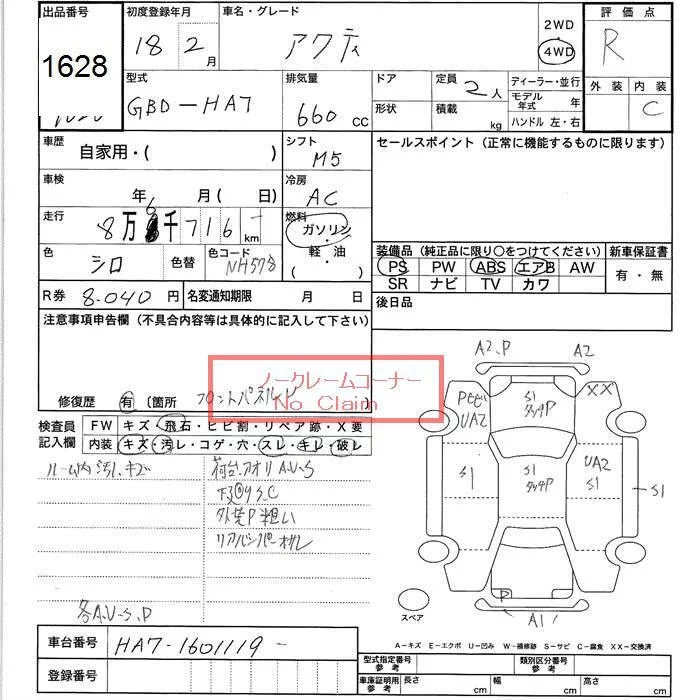 出品番号
1628
初度登録年月
18 2月
車名・グレード
アクティ
2WD
4WD
評価点
R
外装 内装
C
型式
GBD-HA7
排気量
660 cc
ドア
形状
定員
2人
積載
kg
ディーラー・並行
モデル年式 年
ハンドル 左・右
車歴
自家用・( )
シフト
M5
セールスポイント (正常に機能するものに限ります)
車検
年 月 ( 日)
冷房
AC
走行
8万6千716km
燃料
ガソリン・
軽・油
( )
色
シロ
色替
色コード
NH578
装備品 (純正品に限り○をつけてください)
PS PW ABS エアB AW
SR ナビ TV カワ
新車保証書
有・無
R券 8.040円
名変通知期限 月 日
後日品
注意事項申告欄 (不具合内容等は具体的に記入して下さい)
ノークレームコーナー
No Claim
修復歴 有 (箇所 フロントパネル
検査員記入欄
FW キズ・飛石・ヒビ割・リペア跡・X要
内装 キズ・汚レ・コゲ・穴・スレ・キレ・破レ
ルーム内汚レ、キズ
荷台、アオリA.U.S
下回りS.C
外装P粗い
リアバンパーオレ
各A.U.S.P
A2.P A2
XX
UA2
S1
S1
S1
UA2
S1
S1
P
A1
スペア
A-キズ E-エクボ U-凹み W-補修跡 S-サビ C-腐食 XX-交換済
車台番号 HA7-1601119-
登録番号
型式指定番号 参考
類別区分番号 参考
車庫証明用 参考
長さ cm
幅 cm
高さ cm